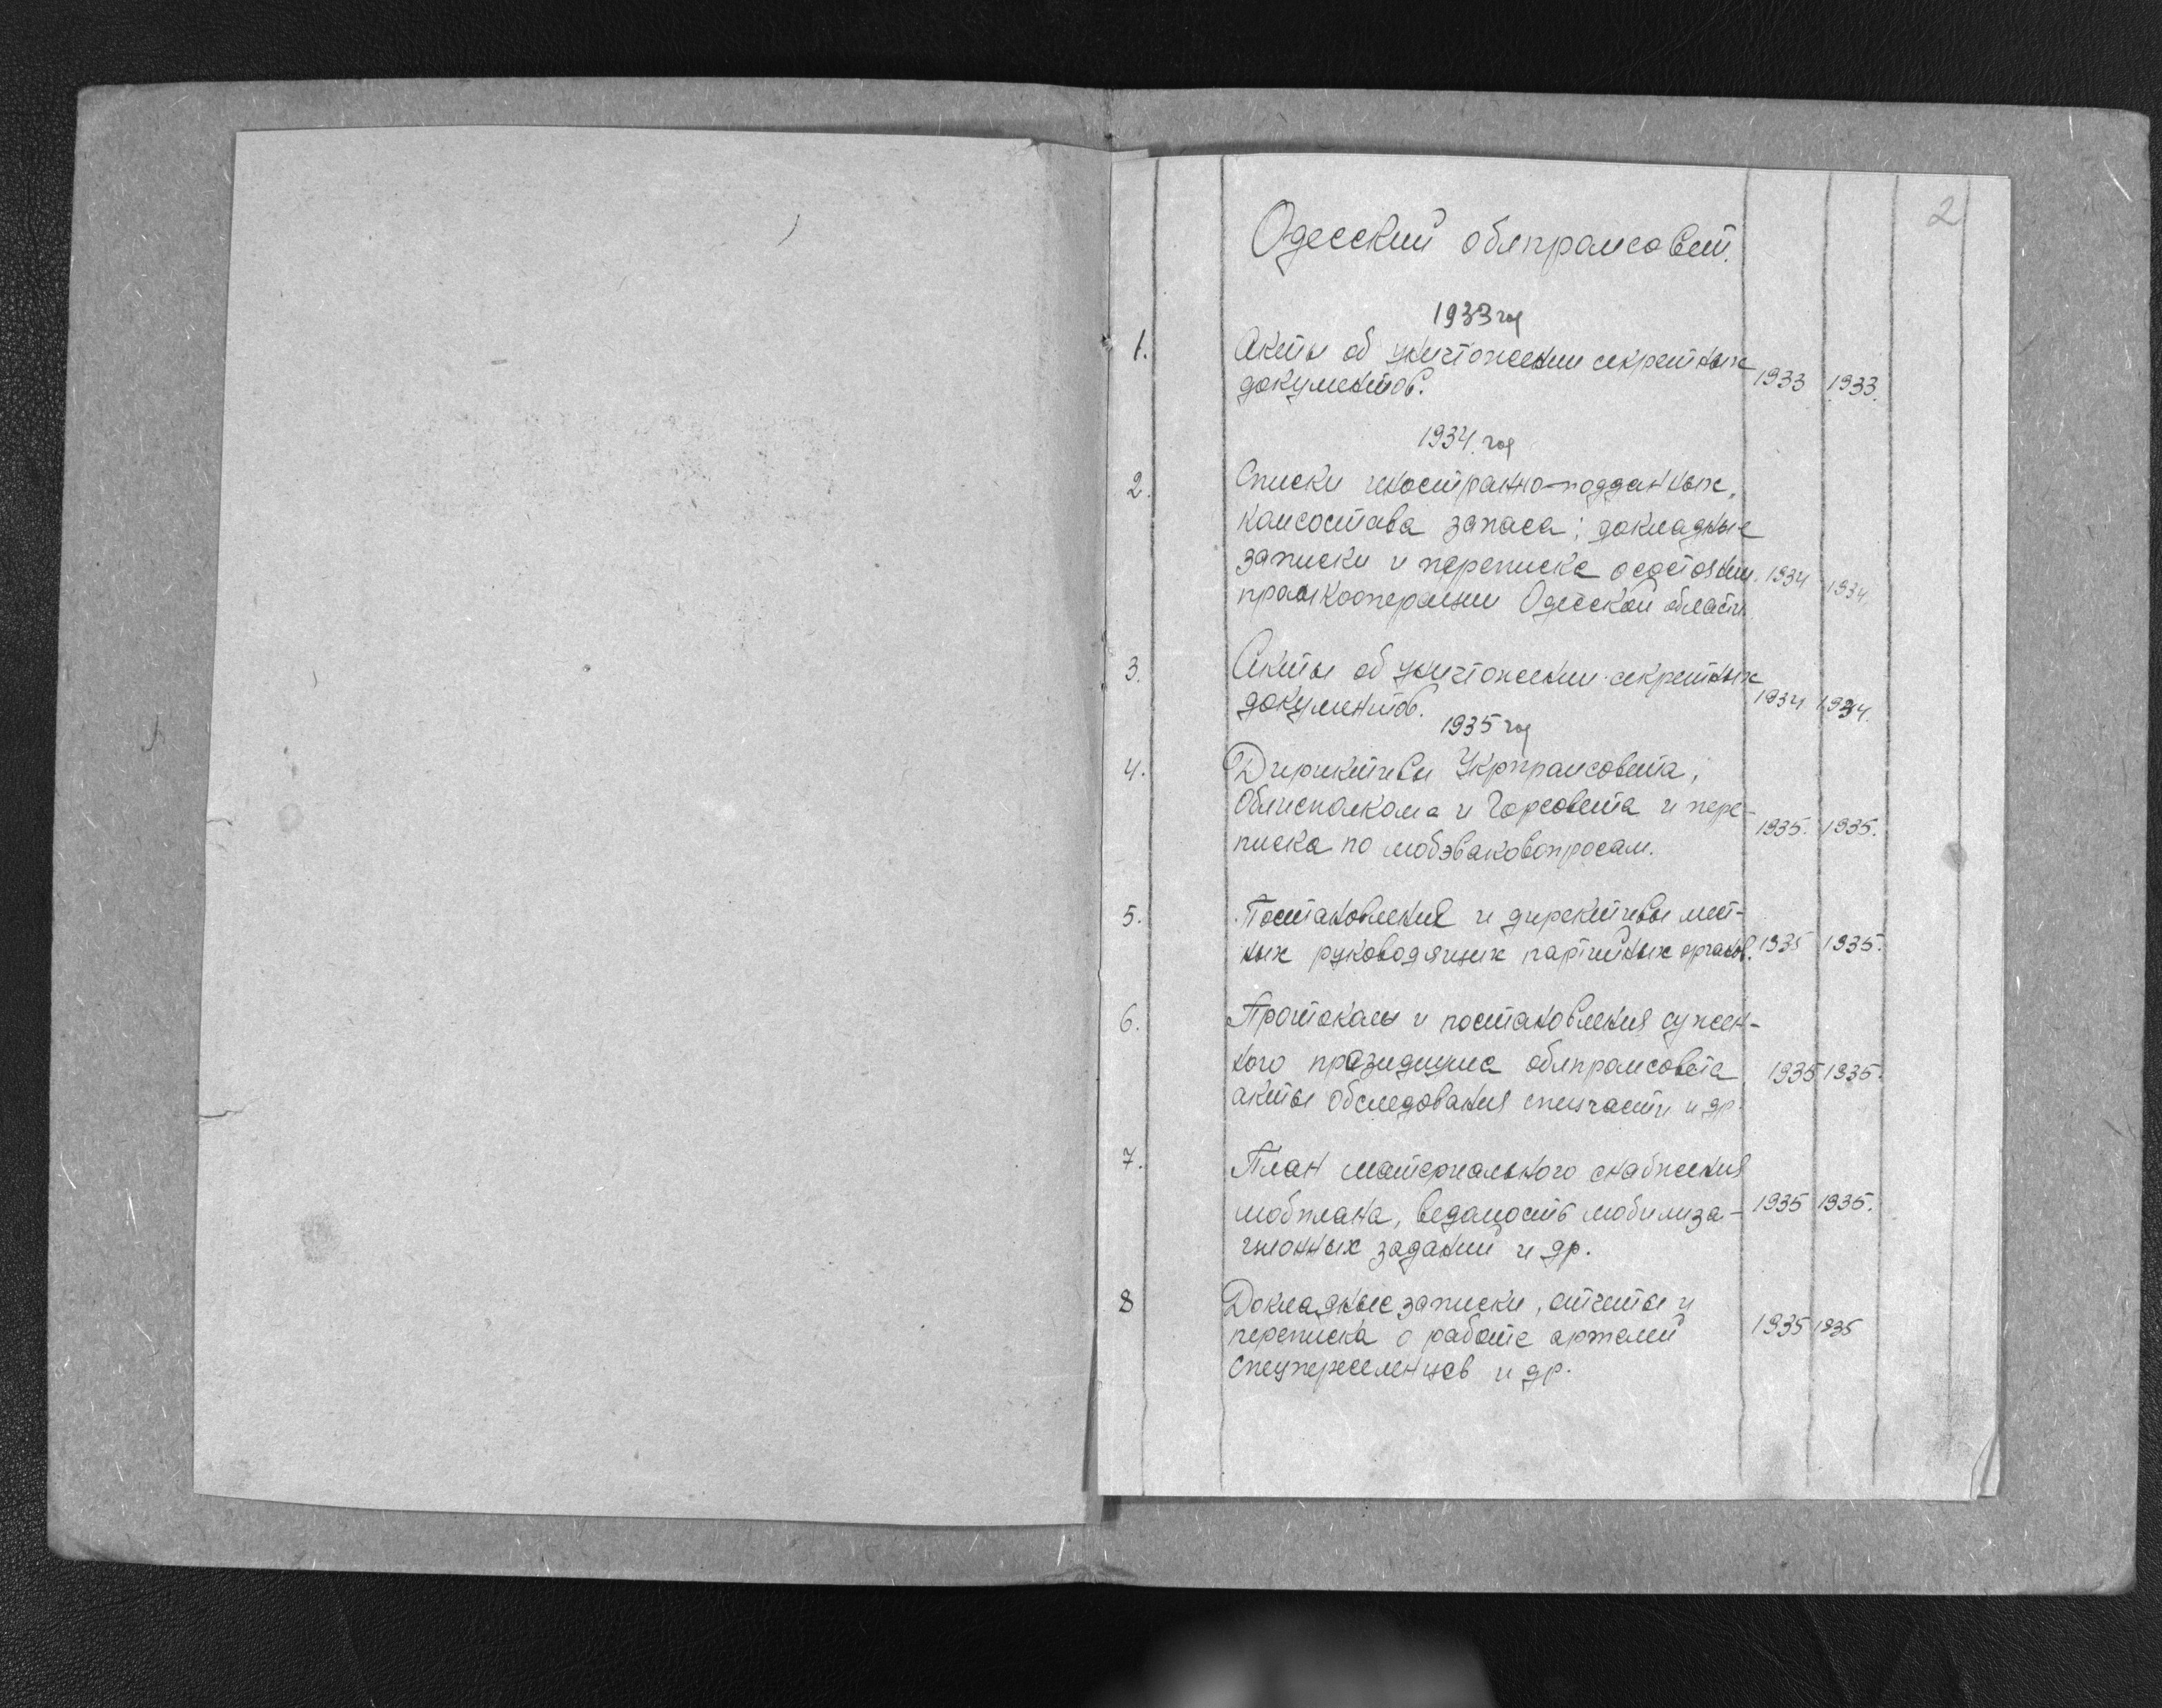 2
Одесский облпромсовет.
1933 год
1. Акты об уничтожении секретных
документов. 1933 1933.
1934 год
2. Списки иностранно-подданных,
комсостава запаса; докладные
записки и переписка о состоянии 1934 1934.
промкооперации Одесской области.
3. Акты об уничтожении секретных
документов. 1934 1934.
1935 год
4. Дириктивы Укрпромсовета,
Облисполкома и Горсовета и пере-
писка по мобэваковопросам. 1935. 1935.
5. Постановления и директивы мест-
ных руководящих партийных органов. 1935 1935.
6. Протоколы и постановления сужен-
ного президиума облпромсовета 1935 1935.
акты обследования спецчасти и др.
7. План материального снабжения
мобплана, ведомость мобилиза- 1935 1935.
ционных заданий и др.
8 Докладные записки, отчеты и
переписка о работе артелей 1935 1935
спецпереселенцев и др.